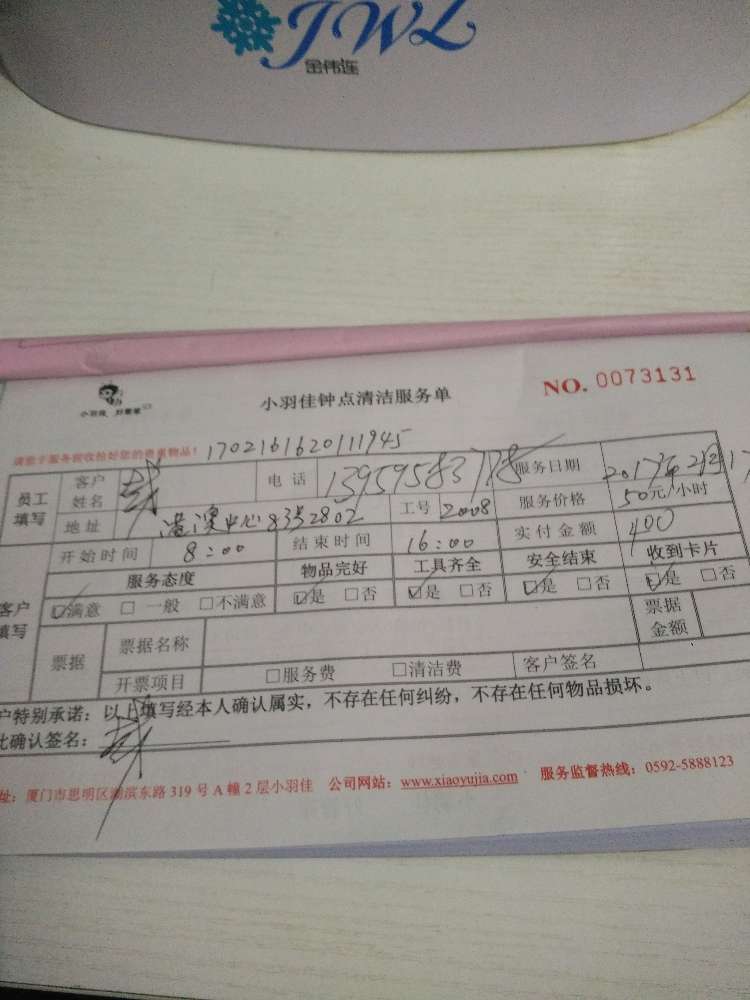 JWL
金伟连
小羽佳 好管家
小羽佳钟点清洁服务单
NO. 0073131
请您于服务前收拾好您的贵重物品! 1702161620111945
员工填写 客户姓名 电话 服务日期 2017年2月17
地址 港澳中心83号2802 工号 2008 服务价格 50元/小时
开始时间 8:00 结束时间 16:00 实付金额 400
客户填写 服务态度 物品完好 工具齐全 安全结束 收到卡片
☑满意 □一般 □不满意 ☑是 □否 ☑是 □否 ☑是 □否 ☑是 □否
票据 票据名称 票据金额
开票项目 □服务费 □清洁费 客户签名
户特别承诺：以上填写经本人确认属实，不存在任何纠纷，不存在任何物品损坏。
此确认签名：
址：厦门市思明区湖滨东路 319 号 A 幢 2 层小羽佳 公司网站：www.xiaoyujia.com 服务监督热线：0592-5888123